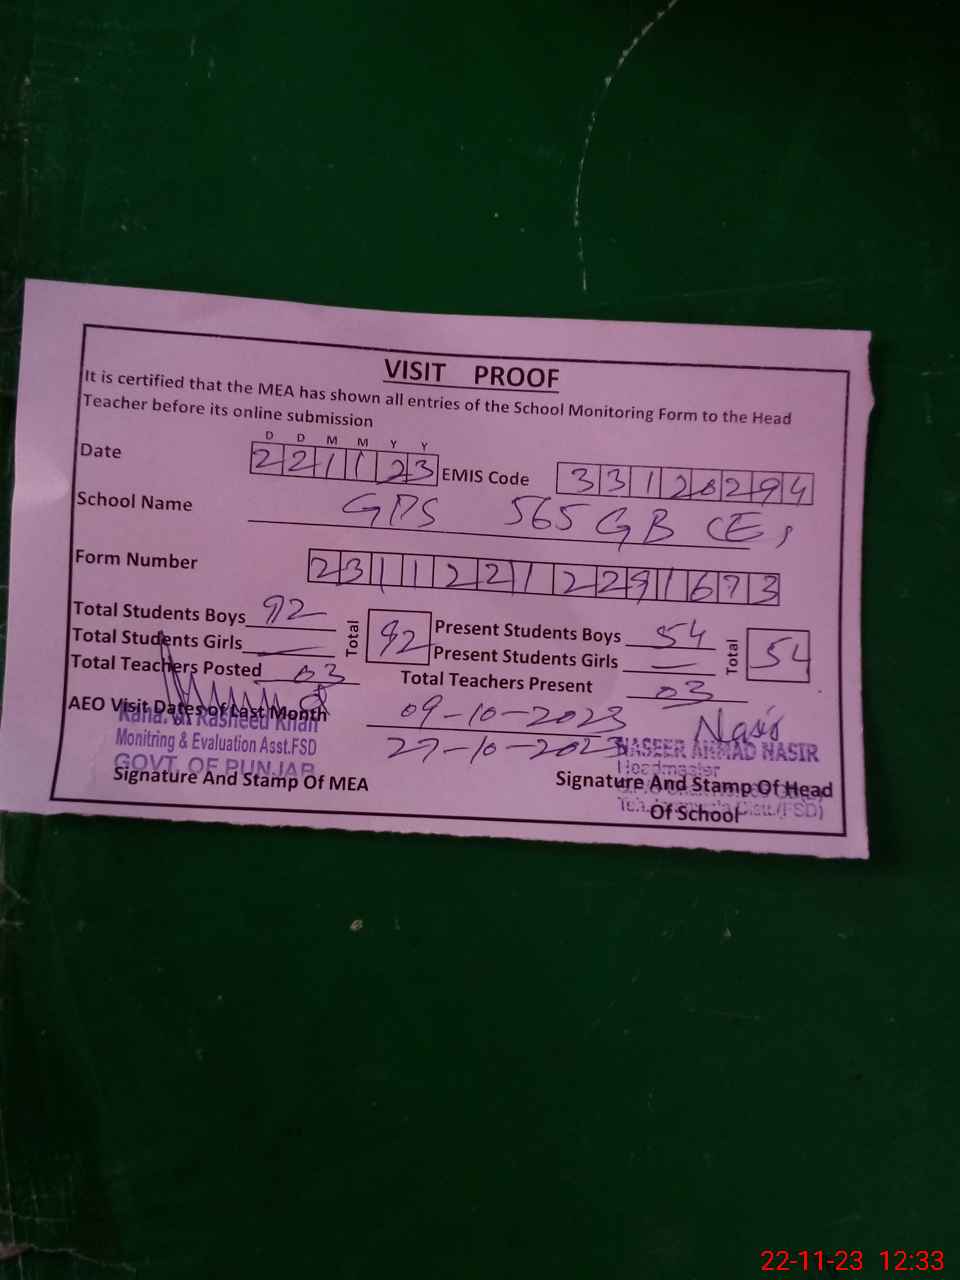 VISIT PROOF
It is certified that the MEA has shown all entries of the School Monitoring Form to the Head
Teacher before its online submission
D D M M Y Y
Date 221123 EMIS Code 33120294
School Name GPS 565 GB
Form Number 231122122291673
Total Students Boys 92 Total 92 Present Students Boys 54 Total 54
Total Students Girls — Present Students Girls —
Total Teachers Posted 03 Total Teachers Present 03
AEO Visit Dates of Last Month 09-10-2023
27-10-2023
Rasheed Khan
Monitring & Evaluation Asst.FSD
GOVT. OF PUNJAB
Signature And Stamp Of MEA
Nasir
NASEER AHMAD NASIR
Headmaster
(FSD)
Signature And Stamp Of Head
Of School
22-11-23 12:33